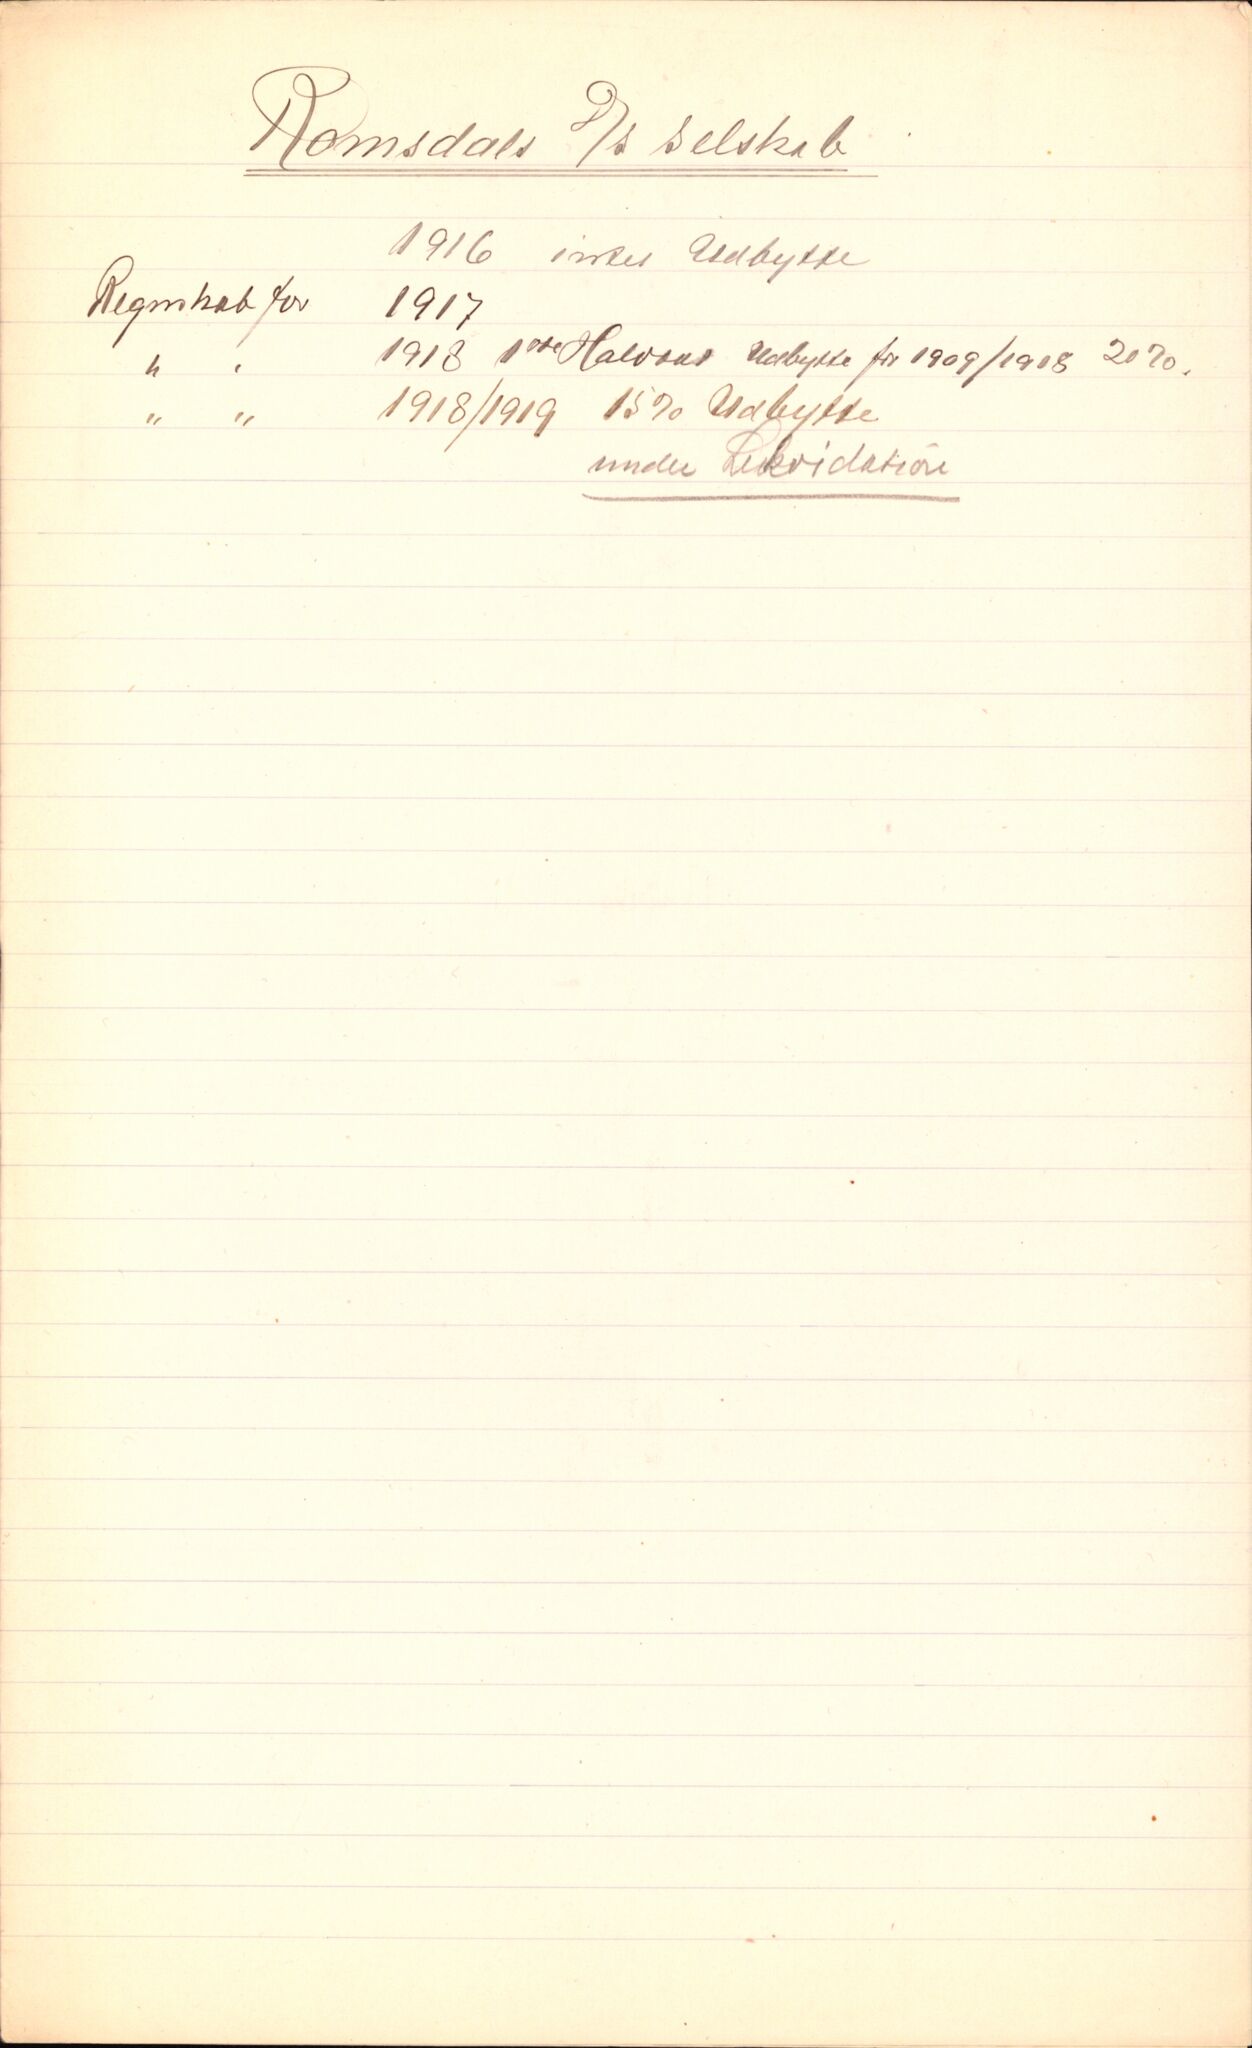 Romsdals D/S Selskab
1916 intet Udbytte
Regnskab for 1917
" " 1918 1ste Halvaar Udbytte for 1909/1918 20%.
" " 1918/1919 15% Udbytte
under Likvidation